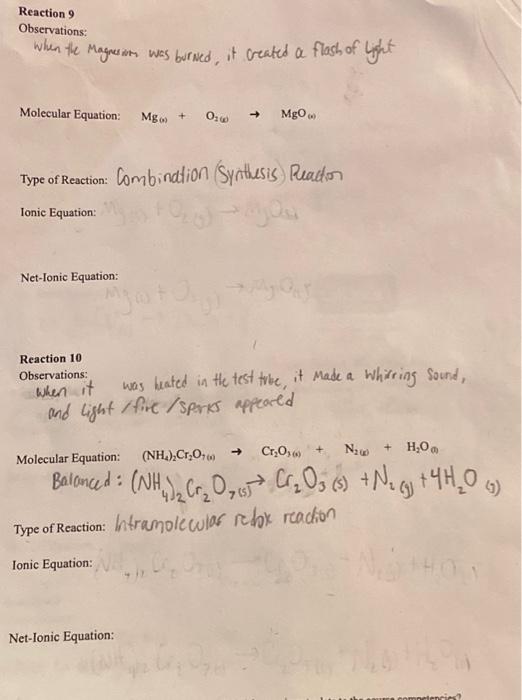 Reaction 9
Observations:
when the Magnesium was burned, it created a flash of light
Molecular Equation: Mg(s) + O2(g) → MgO(s)
Type of Reaction: Combination (Synthesis) Reaction
Ionic Equation:
Net-Ionic Equation:
Reaction 10
Observations:
when it was heated in the test tube, it made a whirring sound,
and light / fire / sparks appeared
Molecular Equation: (NH4)2Cr2O7(s) → Cr2O3(s) + N2(g) + H2O(l)
Balanced: (NH4)2Cr2O7(s) → Cr2O3(s) + N2(g) + 4H2O(g)
Type of Reaction: Intramolecular redox reaction
Ionic Equation:
Net-Ionic Equation: